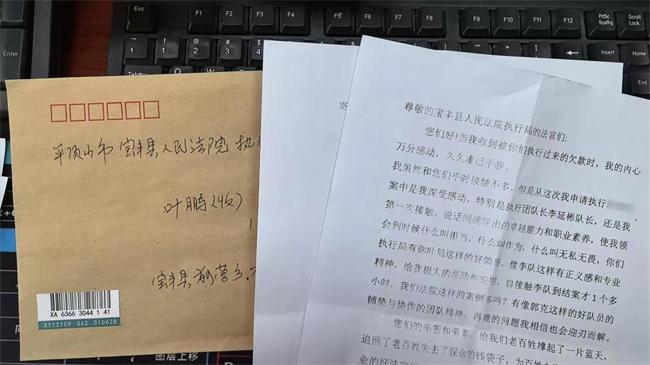 平顶山市宝丰县人民法院 执
叶鹏(收)
宝丰县
XA 6366 3044 1 41
XY12109 062 010628
寄
尊敬的宝丰县人民法院执行局的法官们:
您们好!当我收到被你们执行过来的欠款时,我的内心
万分感动,久久难已平静。
我虽然和您们平时接触不多,但是从这次我申请执行
案中是我深受感动,特别是执行团队长李延彬队长,还是我
第一次接触,说话间展导出的卓越能力和职业素养,使我领
会到时候什么叫担当,什么叫作为,什么叫无私无畏,你们
执行局有你叶局这样的好领导,像李队这样有正义感和专业
精神,给我极大的帮助和安慰,自接触李队到结案才1个多
小时,我们法院这样的案例多吗?有像郭克这样的好队员的
铺垫与协作的团队精神,再难的问题我相信也会迎刃而解。
您们的辛苦和劳累,给我们老百姓撑起了一片蓝天,
追回了老百姓失去了保命的钱袋子,为百姓
业的好法官
Enter
Ctrl
F5
F6
F7
F8
F9
F10
F11
F12
PrtSc
SysRq
Scroll
Lock
Insert
图层上移